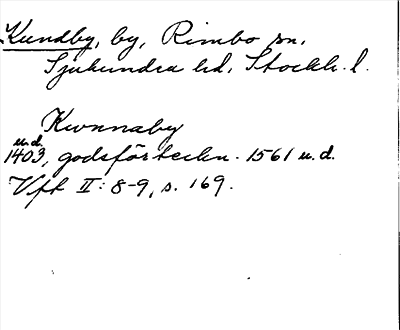 Kundby, by, Rimbo sn,
Sjuhundra hd, Stockh. l.
Kwnnaby
u.d.
1403, godsförteckn. 1561 u.d.
Vfh II: 8-9, s. 169.